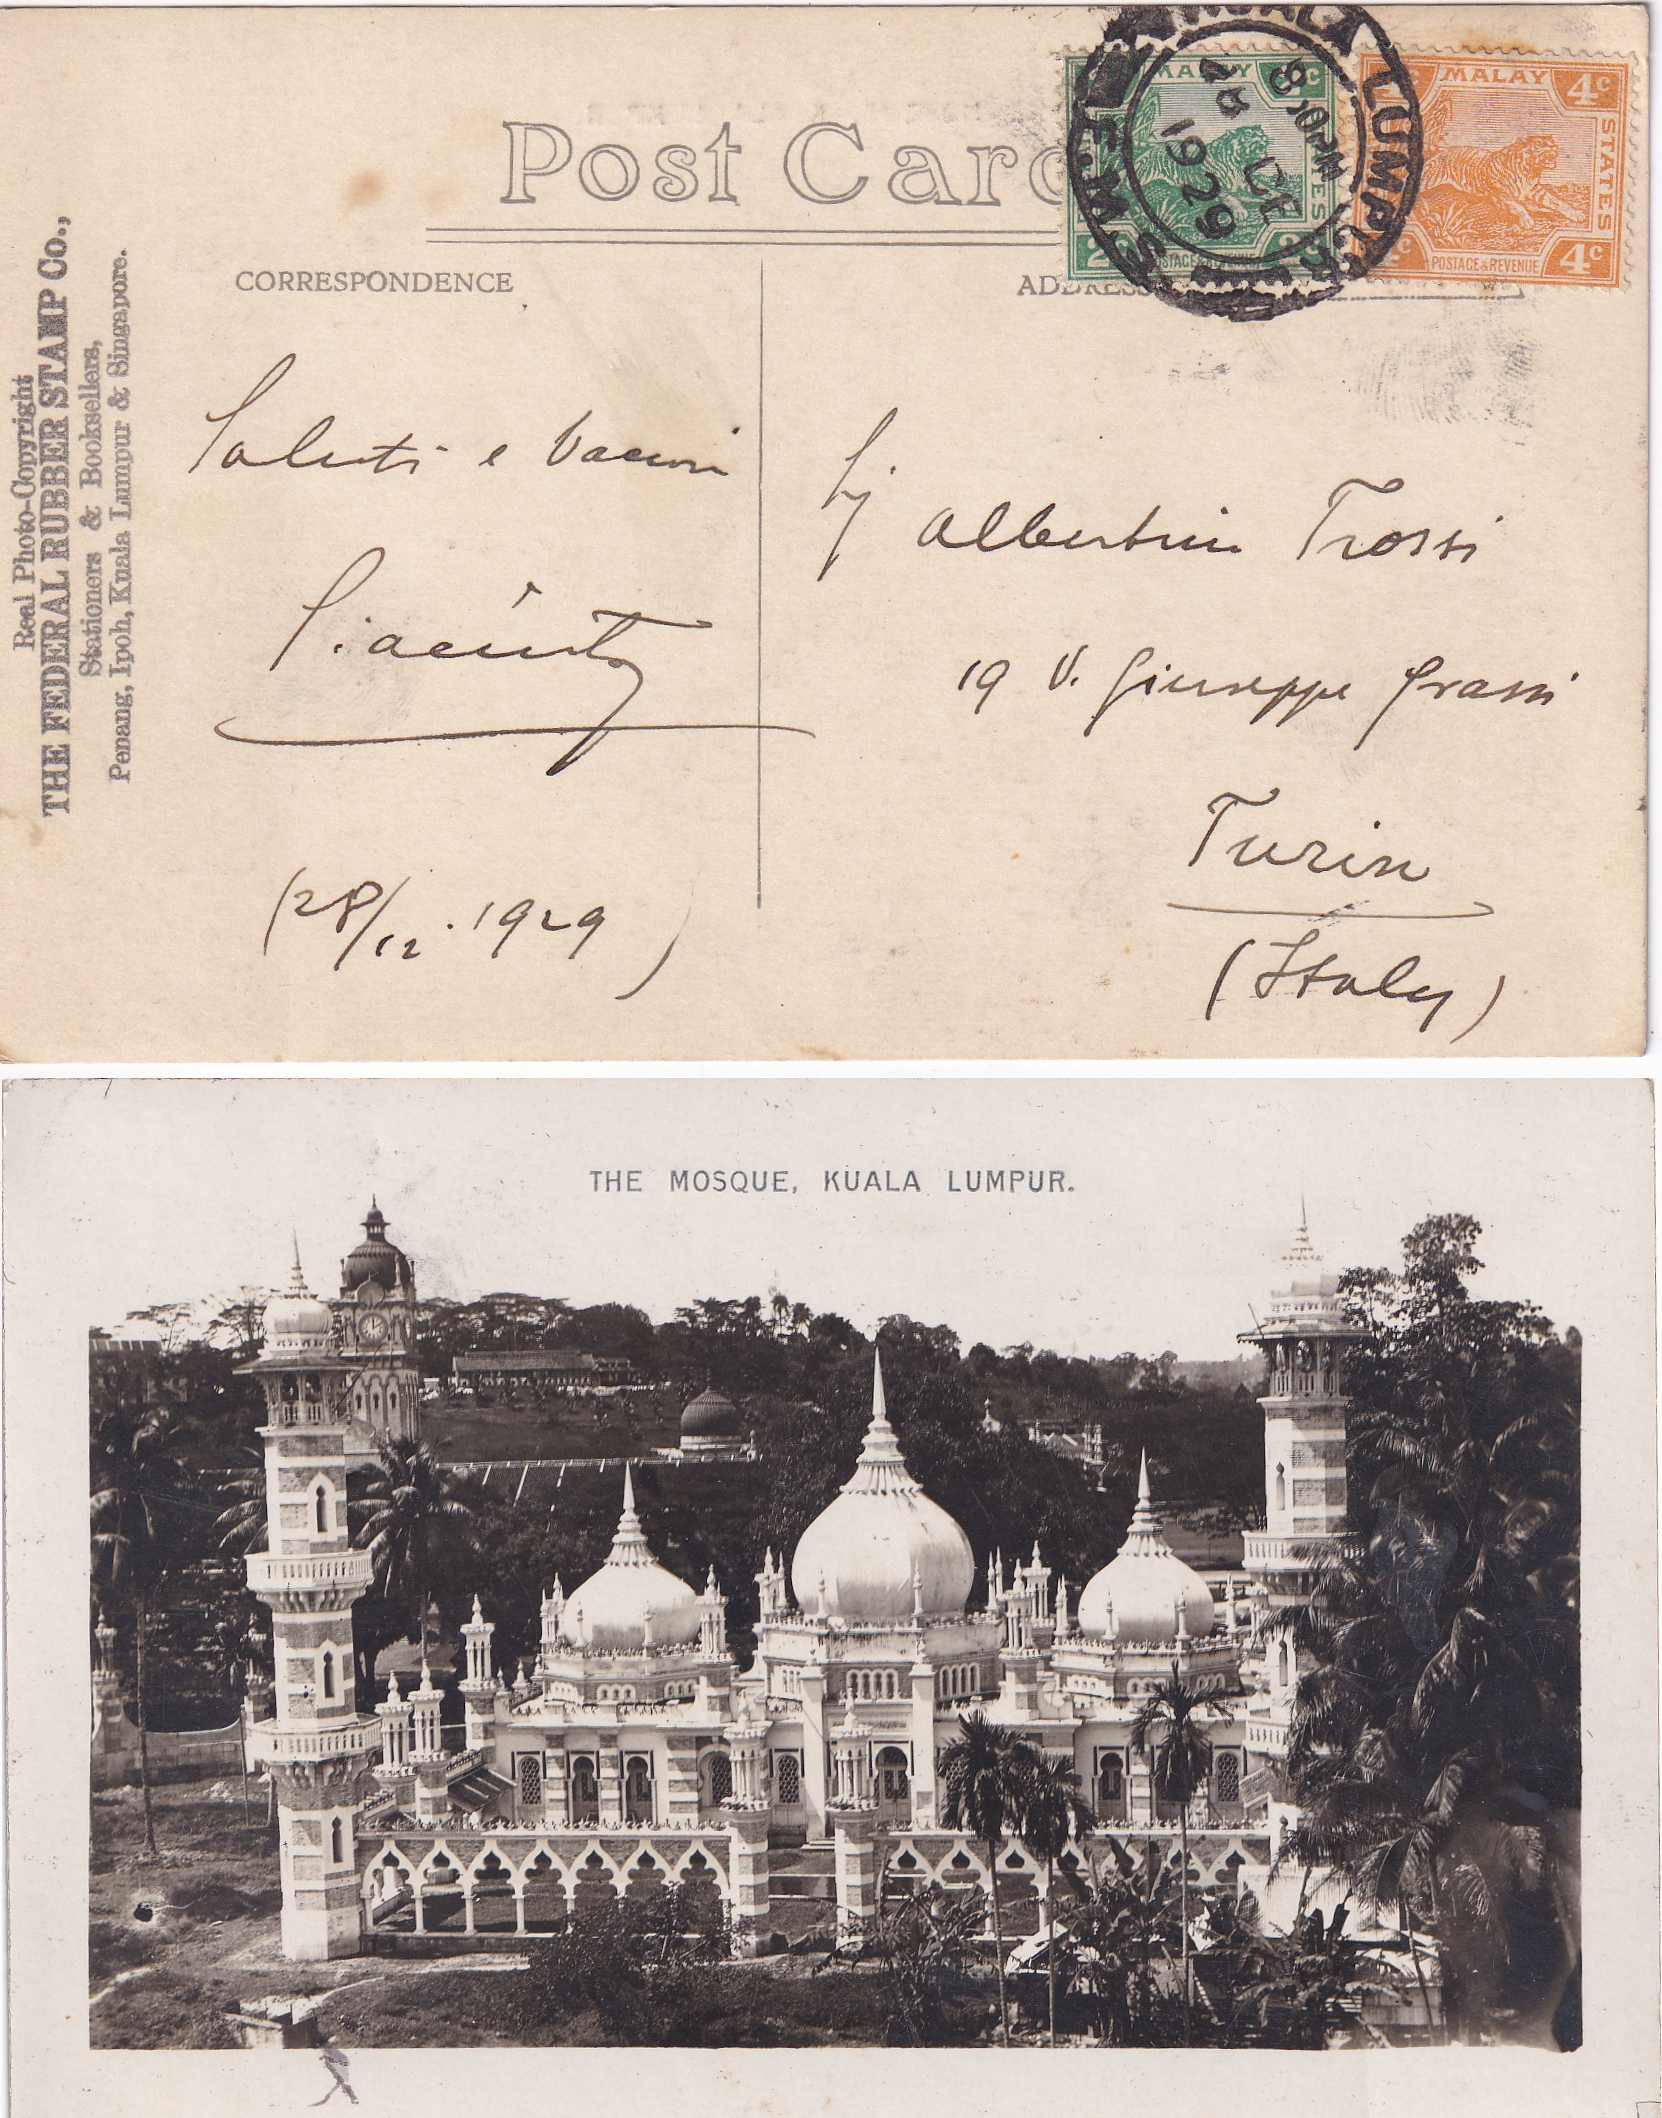 Post Card
CORRESPONDENCE
ADDRESS
Real Photo-Copyright
THE FEDERAL RUBBER STAMP Co.,
Stationers & Booksellers,
Penang, Ipoh, Kuala Lumpur & Singapore.
MALAY
2c
POSTAGE & REVENUE
MALAY
4c
STATES
POSTAGE & REVENUE
4c
KUALA LUMPUR
F.M.S.
1929
Saluti e bacioni
Giacinto
(28/12.1929)
Albertini Trossi
19 V. Giuseppe Grassi
Turin
(Italy)
THE MOSQUE, KUALA LUMPUR.